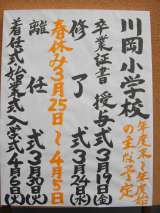 川岡小学校
年度末～年度始
の主な予定
卒業証書授与式3月19日(金)
修了式3月24日(水)
春休み3月25日～4月5日
離任式3月
着任式始業式4月6日(火)
入学式4月